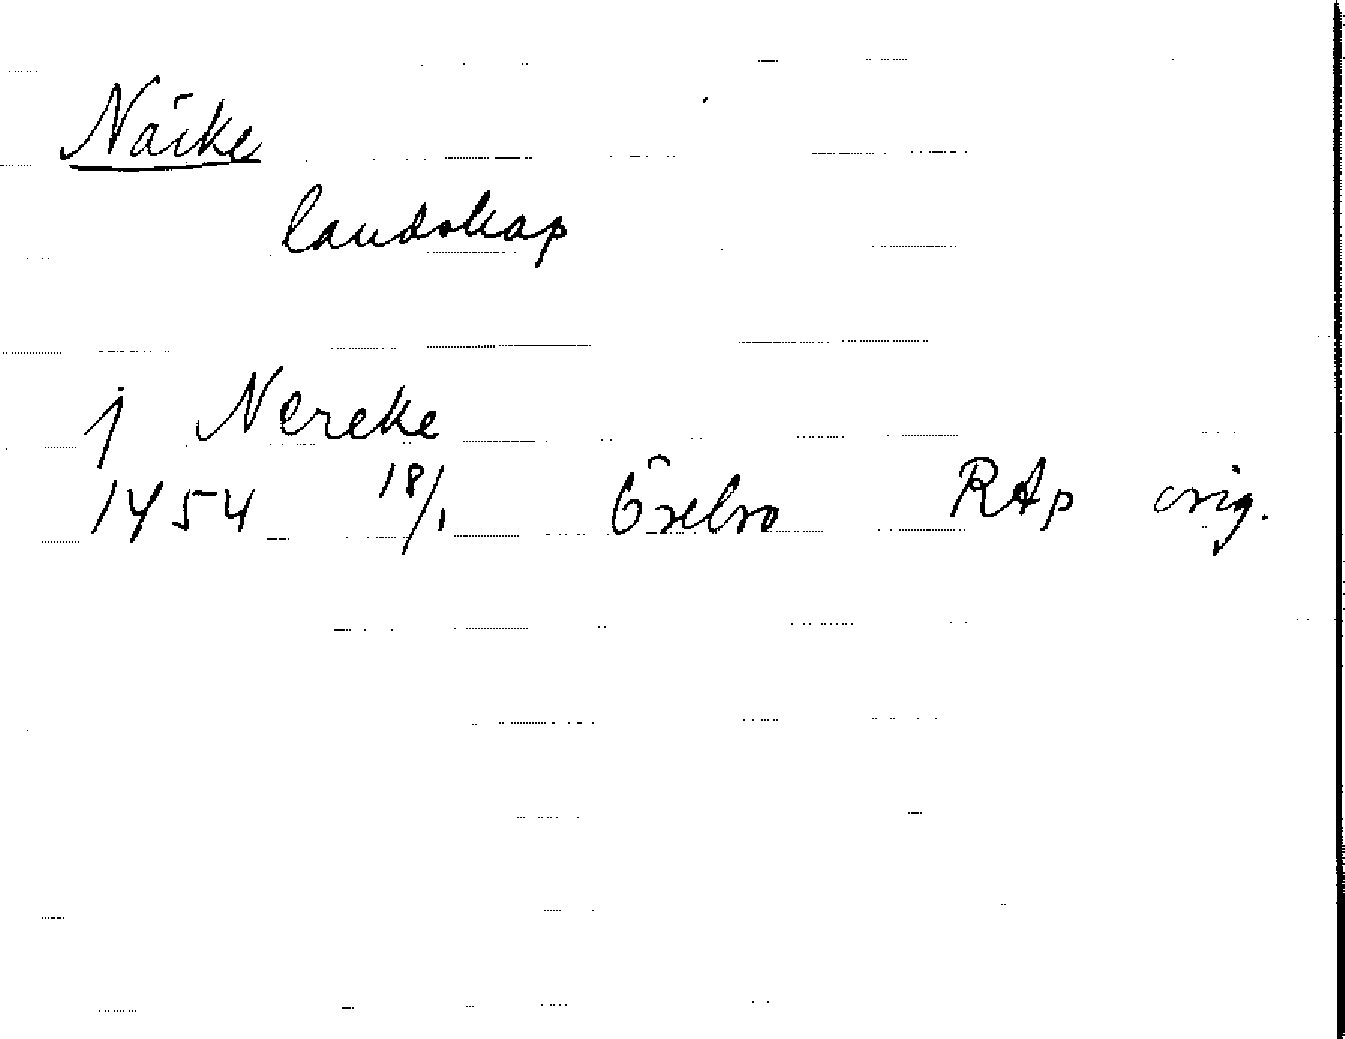 Närke
landskap
j Nereke
1454 18/1 Örebro RAp orig.